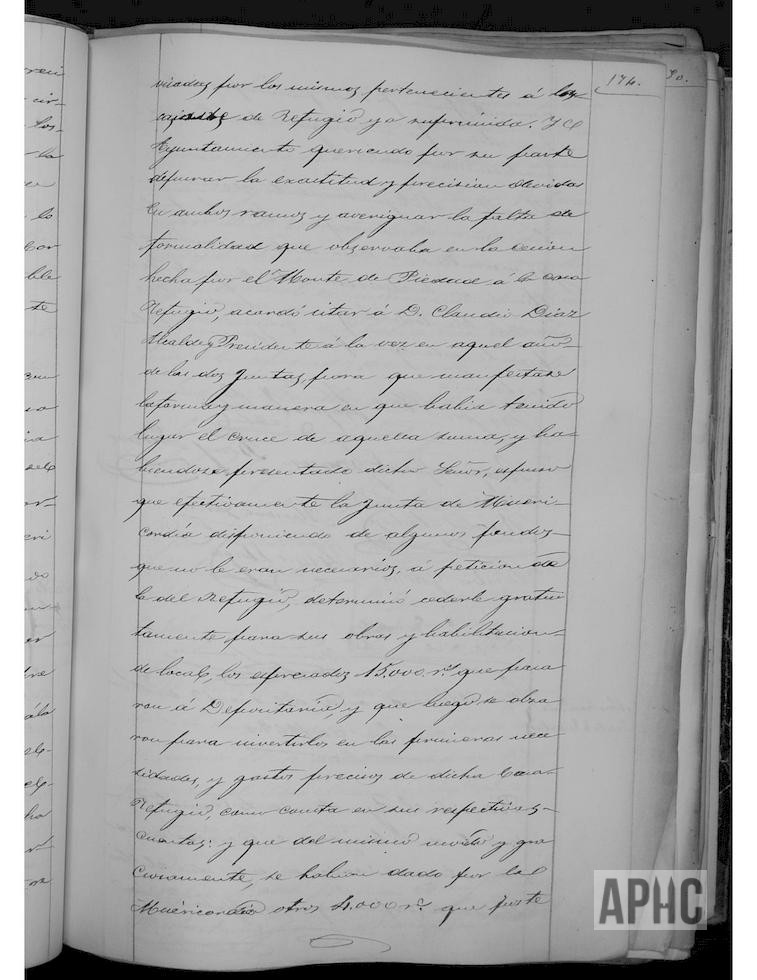 174.
vinadas por los mismos pertenecientes á las
de Refugio ya suprimida. Y el
Ayuntamiento queriendo por su parte
depurar la exactitud y precision devidas
en ambos ramos y averiguar la falta de
formalidad que observaba en la cesion
hecha por el Monte de Piedad á la casa
Refugio, acordó citar á D. Claudio Diaz
Alcalde y Presidente á la vez en aquel año
de las dos Juntas, para que manifestase
la forma y manera en que habia tenido
lugar el cruce de aquella suma, y ha-
biendose presentado dicho Señor, espuso
que efectivamente la Junta de Miseri-
cordia disponiendo de algunos fondos
que no le eran necesarios, á peticion de
la del Refugio, determinó cederle gratui
tamente para sus obras y habilitacion
de local, los espresados 15.000 rs. que pasa
ron á Depositaría, y que luego se
ron para invertirlos en las primeras nece
sidades, y gastos precisos de dicha Casa
Refugio, como consta en sus respectivas
cuentas: y que del mismo modo y gra
ciosamente, se habian dado por la
Misericordia otros 4.000 rs. que
APHC